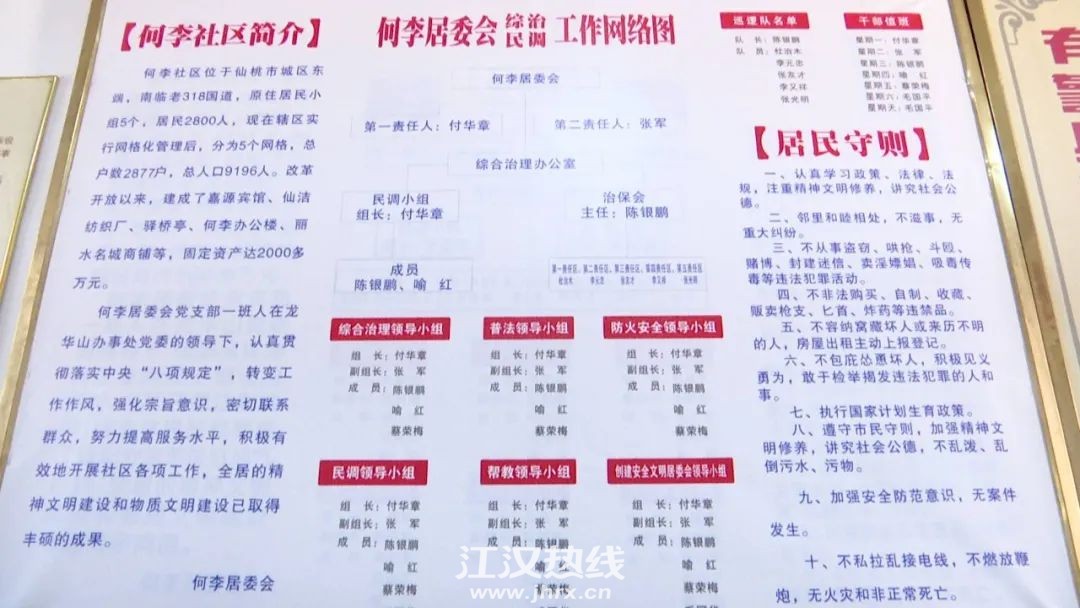 【何李社区简介】
何李社区位于仙桃市城区东
端，南临老318国道，原住居民小
组5个，居民2800人，现在辖区实
行网格化管理后，分为5个网格，总
户数2877户，总人口9196人。改革
开放以来，建成了嘉源宾馆、仙洁
纺织厂、驿桥亭、何李办公楼、丽
水名城商铺等，固定资产达2000多
万元。
何李居委会党支部一班人在龙
华山办事处党委的领导下，认真贯
彻落实中央“八项规定”，转变工
作作风，强化宗旨意识，密切联系
群众，努力提高服务水平，积极有
效地开展社区各项工作，全居的精
神文明建设和物质文明建设已取得
丰硕的成果。
何李居委会
何李居委会 综治民调 工作网络图
何李居委会
第一责任人：付华章
第二责任人：张军
综合治理办公室
民调小组
组长：付华章
治保会
主任：陈银鹏
成员
陈银鹏、喻 红
第一责任区、第二责任区、第三责任区、第四责任区、第五责任区
杜治木 李元忠 张友才 李又祥 张光明
综合治理领导小组
组 长：付华章
副组长：张 军
成 员：陈银鹏
喻 红
蔡荣梅
普法领导小组
组 长：付华章
副组长：张 军
成 员：陈银鹏
喻 红
蔡荣梅
防火安全领导小组
组 长：付华章
副组长：张 军
成 员：陈银鹏
喻 红
蔡荣梅
民调领导小组
组 长：付华章
副组长：张 军
成 员：陈银鹏
喻 红
蔡荣梅
帮教领导小组
组 长：付华章
副组长：张 军
成 员：陈银鹏
喻 红
蔡荣梅
创建安全文明居委会领导小组
组 长：付华章
副组长：张 军
成 员：陈银鹏
喻 红
蔡荣梅
巡逻队名单
队 长：陈银鹏
队 员：杜治木
李元忠
张友才
李又祥
张光明
干部值班
星期一：付华章
星期二：张 军
星期三：陈银鹏
星期四：喻 红
星期五：蔡荣梅
星期六：毛国平
星期天：毛国平
【居民守则】
一、认真学习政策、法律、法
规，注重精神文明修养，讲究社会公
德。
二、邻里和睦相处，不滋事，无
重大纠纷。
三、不从事盗窃、哄抢、斗殴、
赌博、封建迷信、卖淫嫖娼、吸毒传
毒等违法犯罪活动。
四、不非法购买、自制、收藏、
贩卖枪支、匕首、炸药等违禁品。
五、不容纳窝藏坏人或来历不明
的人，房屋出租主动上报登记。
六、不包庇怂恿坏人，积极见义
勇为，敢于检举揭发违法犯罪的人和
事。
七、执行国家计划生育政策。
八、遵守市民守则，加强精神文
明修养，讲究社会公德，不乱泼、乱
倒污水、污物。
九、加强安全防范意识，无案件
发生。
十、不私拉乱接电线，不燃放鞭
炮，无火灾和非正常死亡。
江汉热线
www.jhrx.cn